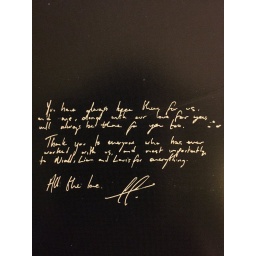 You have always been there for us,
and we, along with our love for you,
will always be there for you too.
Thank you to everyone who has ever
worked with us, and most importantly
to Niall, Liam and Louis for everything.
All the love.
H.